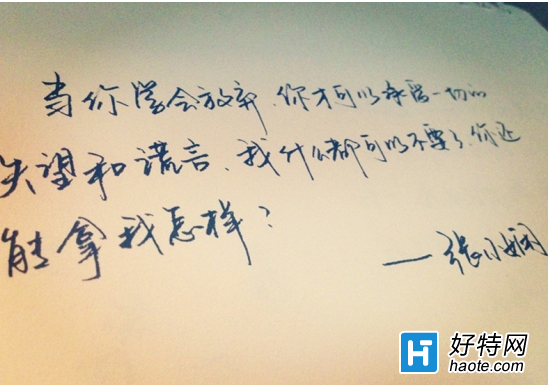 当你学会放弃、你才可以承受一切的
失望和谎言、我什么都可以不要了、你还
能拿我怎样?
——张小娴
好特网
haote.com